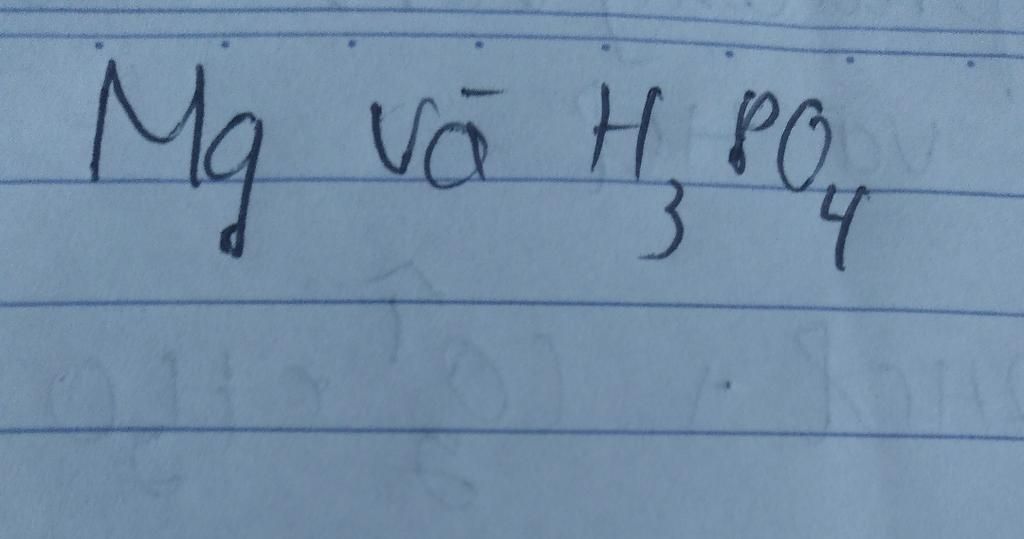 Mg và H₃PO₄